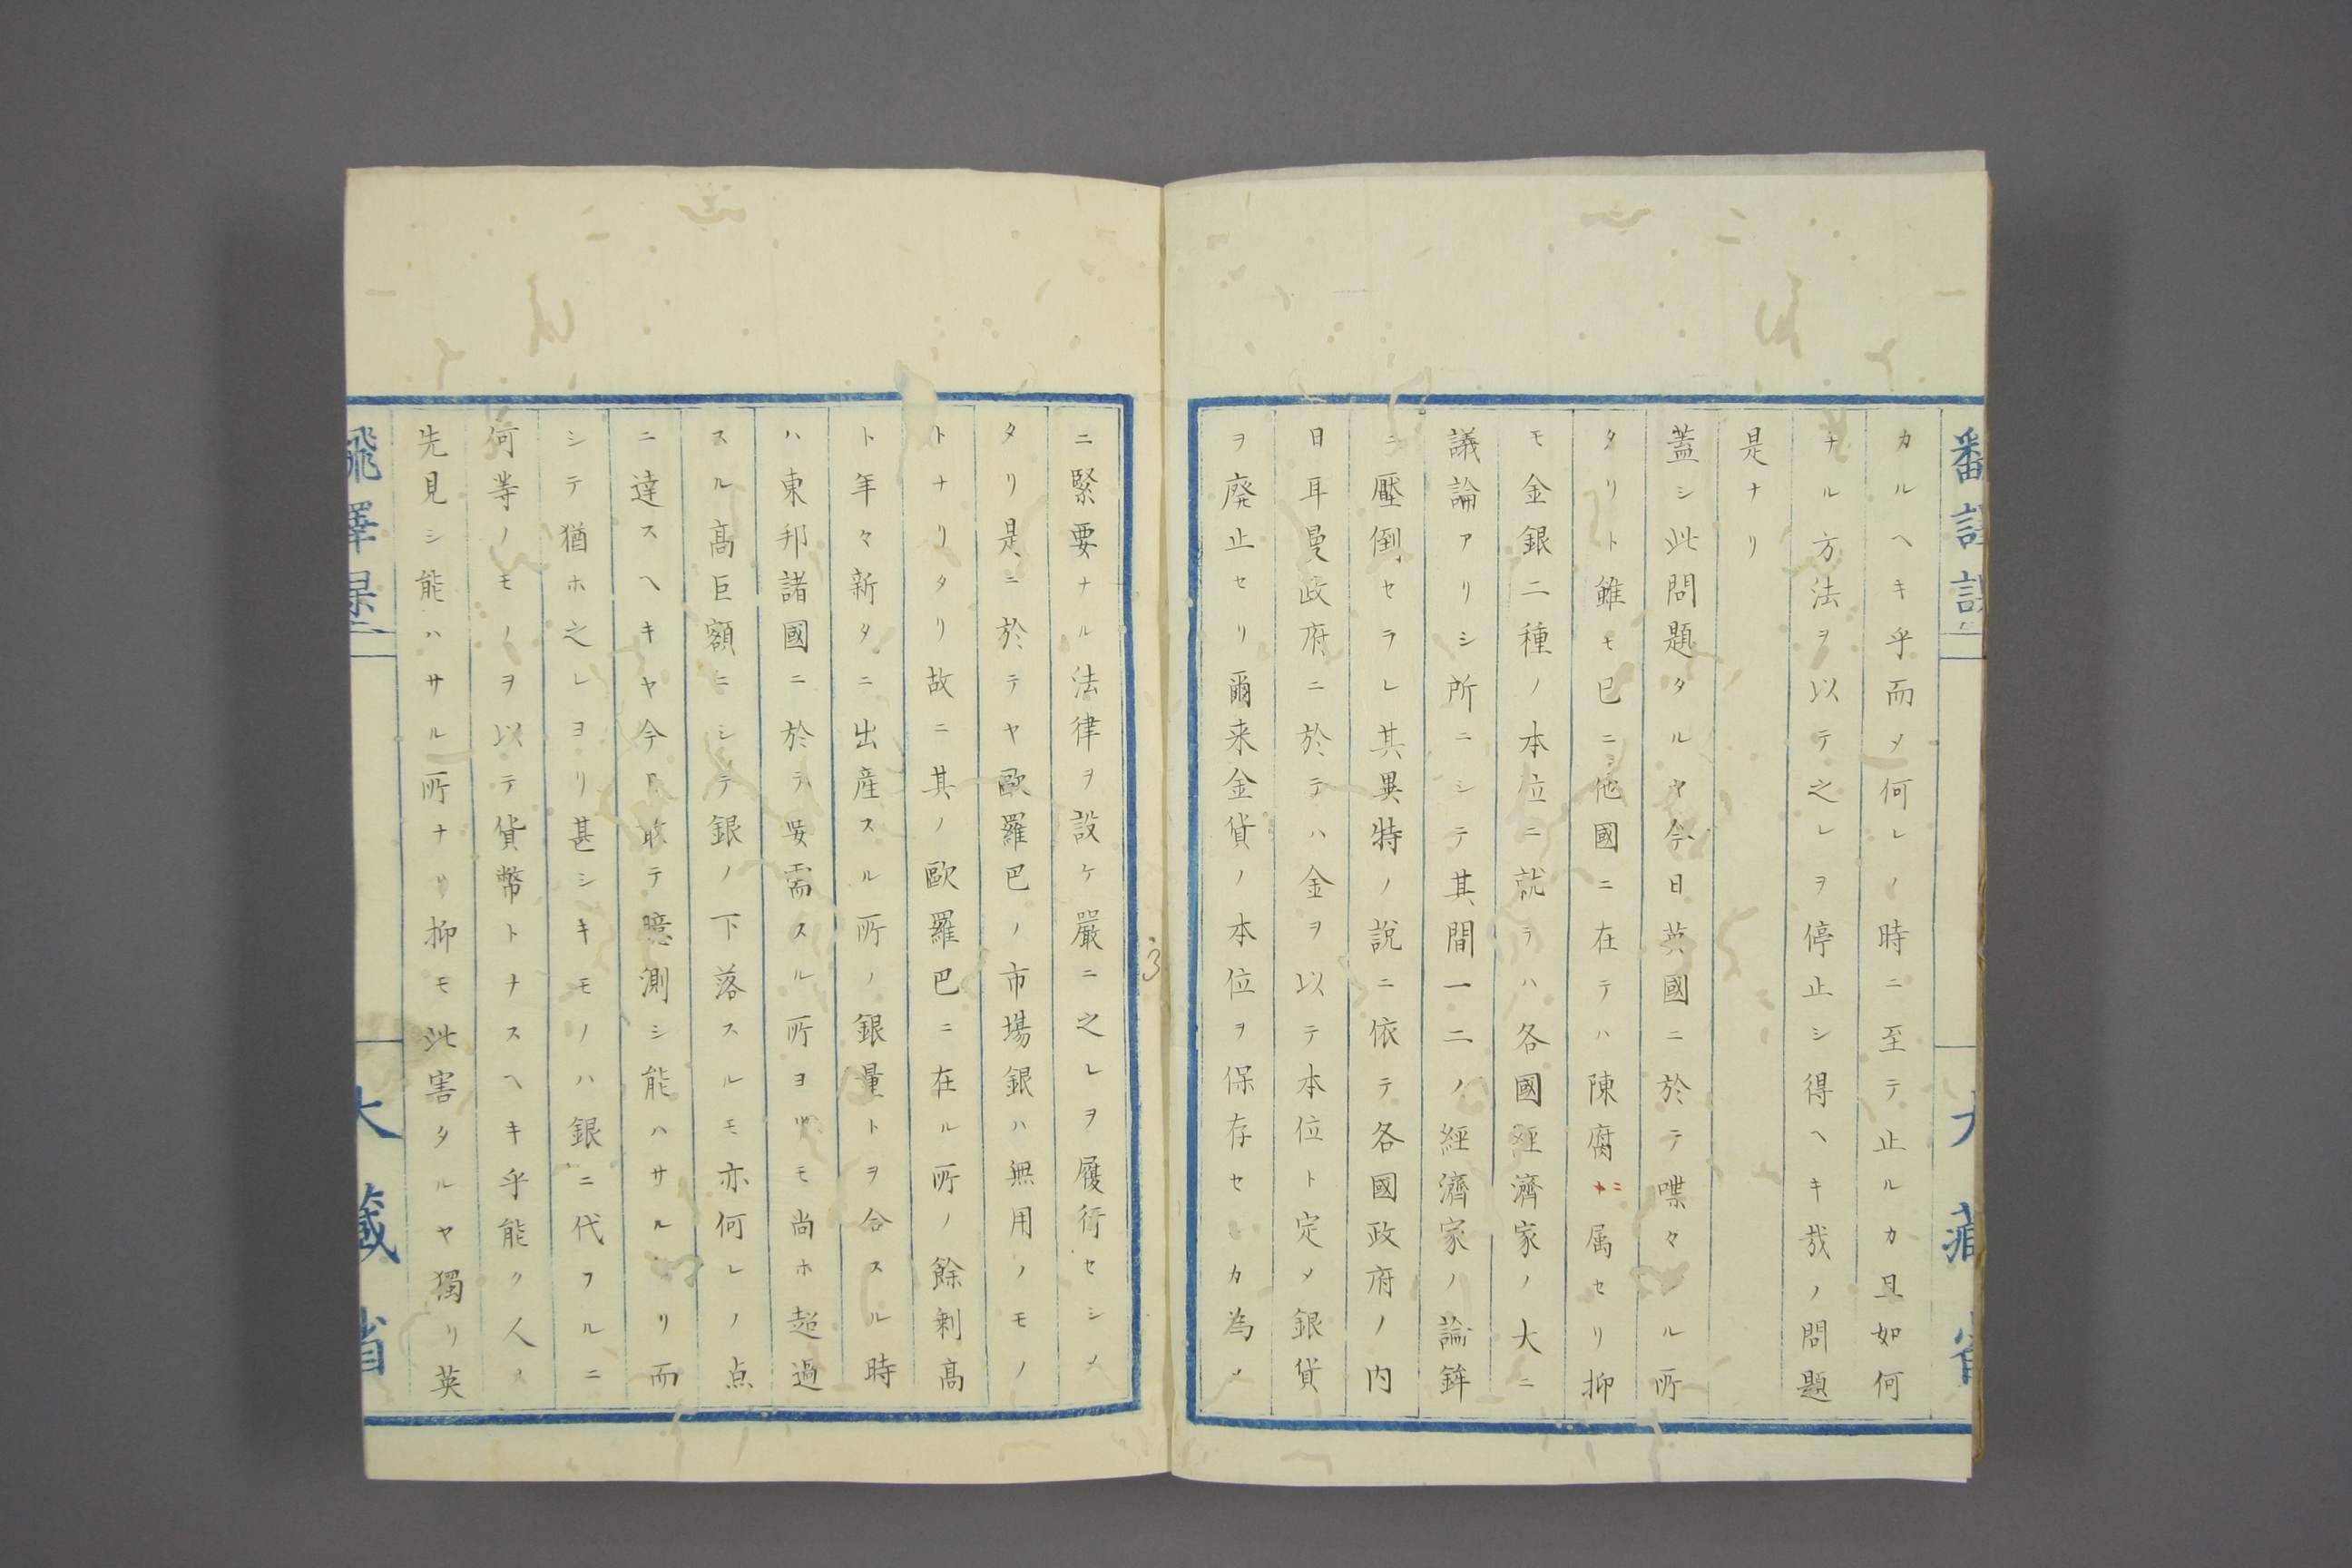 カルヘキ乎而メ何レノ時ニ至テ止ルカ且如何
ナル方法ヲ以テ之レヲ停止シ得ヘキ哉ノ問題
是ナリ
蓋シ此問題タルヤ今日英國ニ於テ喋々スル所
タリト雖モ已ニ他國ニ在テハ陳腐ニ属セリ抑
モ金銀二種ノ本位ニ就テハ各國經濟家ノ大ニ
議論アリシ所ニシテ其間一二ノ經濟家ノ論鉾
ニ壓倒セラレ其異特ノ說ニ依テ各國政府ノ内
日耳曼政府ニ於テハ金ヲ以テ本位ト定メ銀貨
ヲ廃止セリ爾来金貨ノ本位ヲ保存センカ為メ
ニ緊要ナル法律ヲ設ケ嚴ニ之レヲ履行セシメ
タリ是ニ於テヤ歐羅巴ノ市場銀ハ無用ノモノ
トナリタリ故ニ其ノ歐羅巴ニ在ル所ノ餘剰高
ト年々新タニ出産スル所ノ銀量トヲ合スル時
ハ東邦諸國ニ於テ要需スル所ヨリモ尚ホ超過
スル高巨額ニシテ銀ノ下落スルモ亦何レノ点
ニ達スヘキヤ今日敢テ臆測シ能ハサルナリ而
シテ猶ホ之レヨリ甚シキモノハ銀ニ代フルニ
何等ノモノヲ以テ貨幣トナスヘキ乎能ク人ノ
先見シ能ハサル所ナリ抑モ此害タルヤ獨リ英
3
大藏省